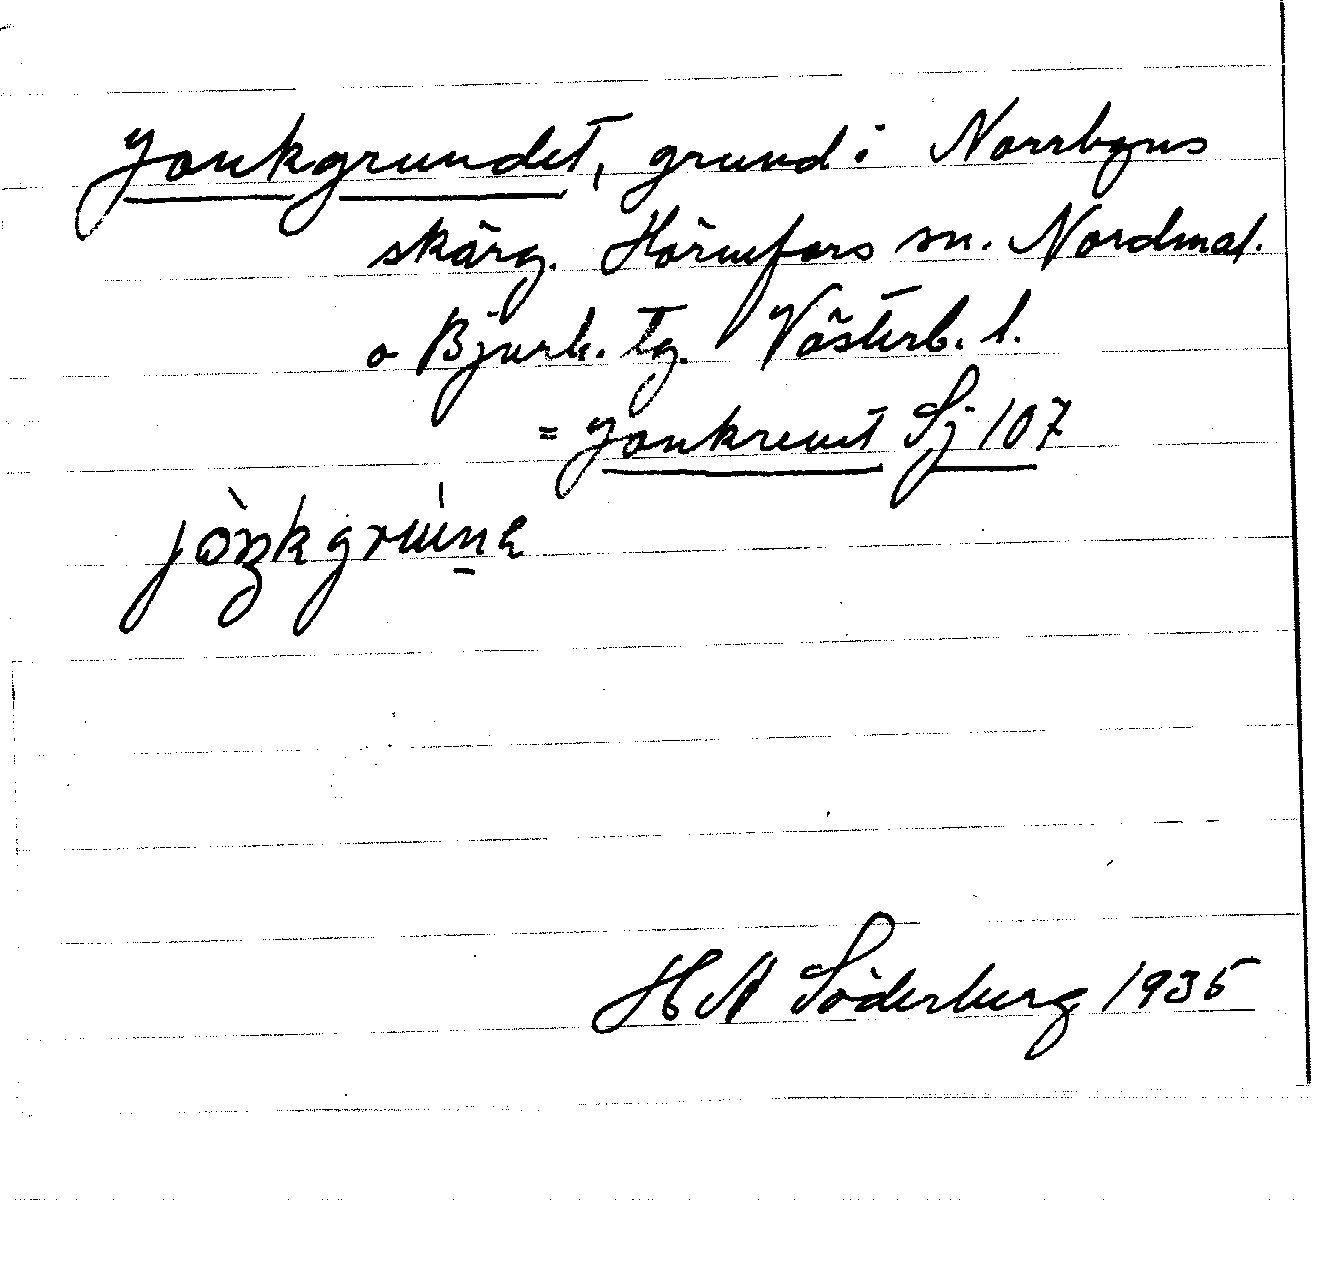 Jonkgrundet, grund i Norrbyns
skärg. Hörnefors sn. Nordmal.
o Bjurh. tg. Västerb. l.
= Jonkrevet Sj 107
HA Söderberg 1935